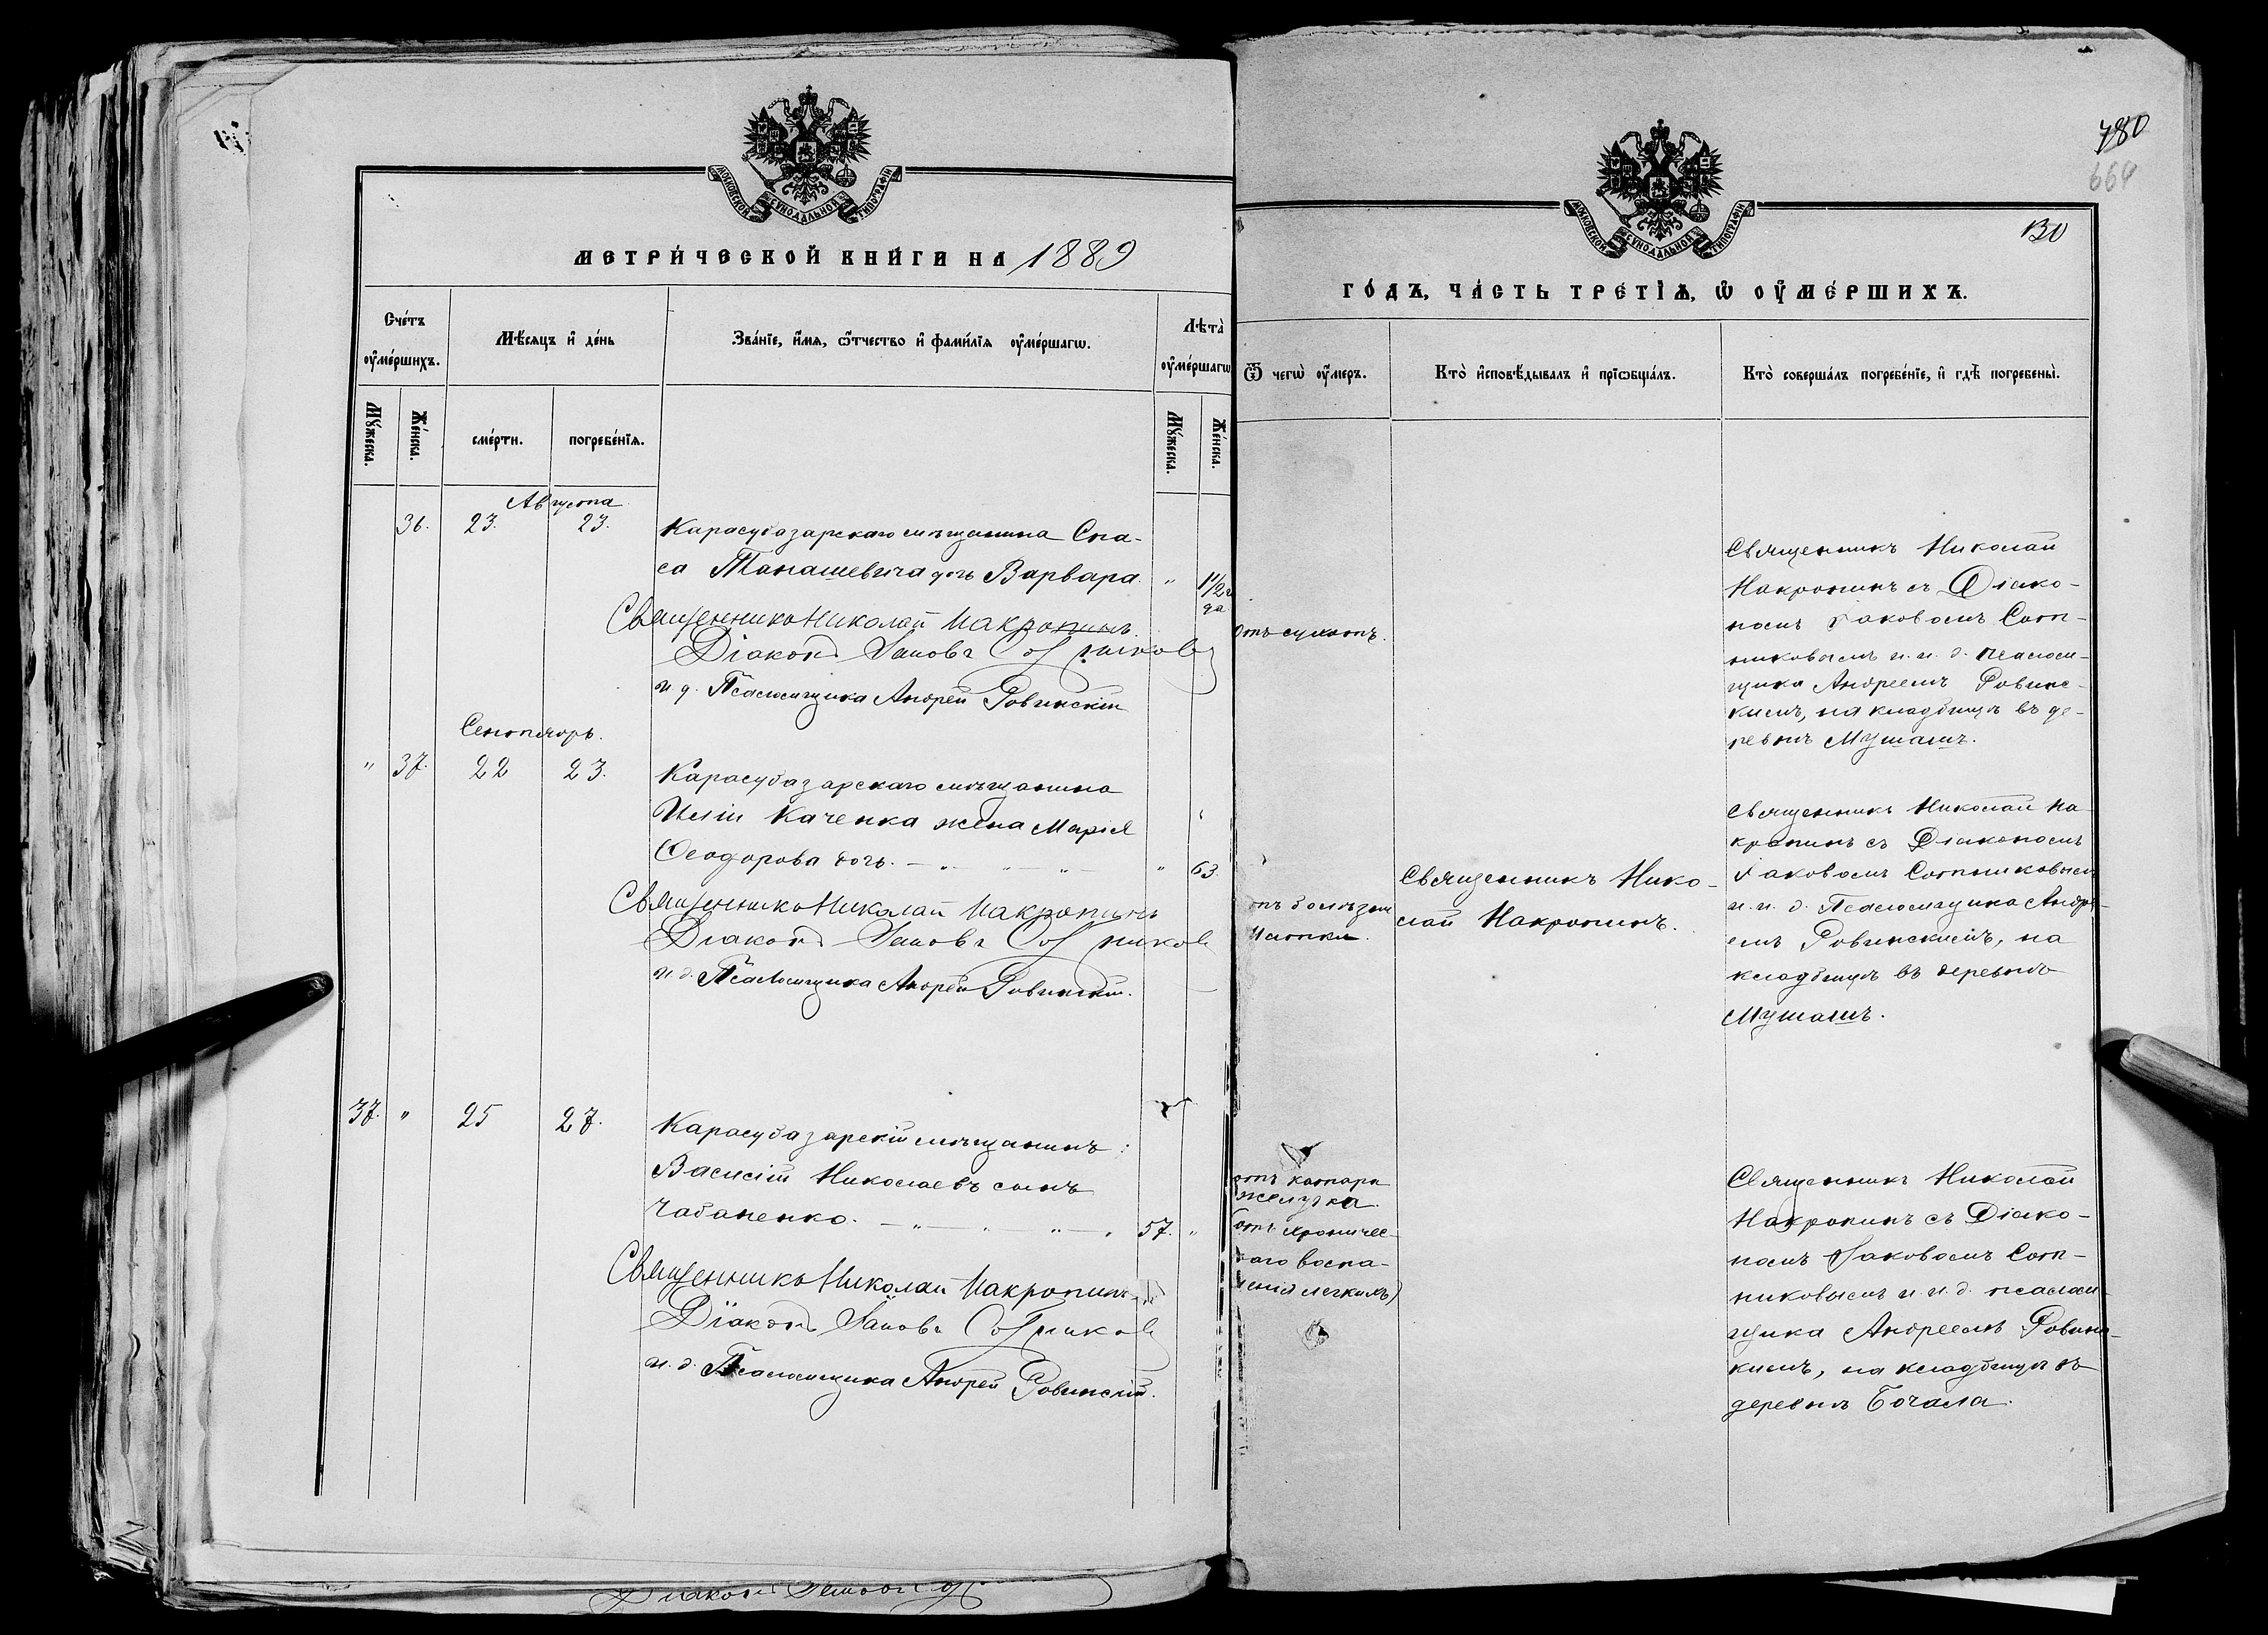 780
664
130
МОСКОВСКОЙ СѴНОДАЛЬНОЙ ТИПОГРАФІИ
МЕТРИ́ЧЕСКОЙ КНИ́ГИ НА 1889
Сче́тъ ᲂу҆ме́ршихъ.
Мѣ́сяцъ и҆ де́нь
Зва́нїе, и҆́мѧ, ѻ҆́тчество и҆ фами́лїѧ ᲂу҆ме́ршагѡ.
Лѣта̀ ᲂу҆ме́ршагѡ
Мꙋ́жеска.
Же́нска.
сме́рти.
погребе́нїѧ.
Мꙋ́жеска.
Же́нска.
Августа
36. 23. 23.
Карасубазарскаго мѣщанина Спа-
са Танашевича дочь Варвара. " 1 1/2 г
да
Священникъ Николай Макропинъ.
Діаконъ Іаковъ Сотниковъ
и. д. Псаломщика Андрей Ровинскій
Сентябрь.
" 37. 22 23.
Карасубазарскаго мѣщанина
Иліи Каченка жена Марія
Ѳеодорова дочь. — " — " — " — " 63.
Священникъ Николай Макропинъ
Діаконъ Іаковъ Сотниковъ
и. д. Псаломщика Андрей Ровинскій.
37. " 25 27.
Карасубазарскій мѣщанинъ:
Василій Николаевъ сынъ
Чабаненко. — " — " — " — 57. "
Священникъ Николай Макропинъ
Діаконъ Іаковъ Сотниковъ
и. д. Псаломщика Андрей Ровинскій.
МОСКОВСКОЙ СѴНОДАЛЬНОЙ ТИПОГРАФІИ
ГО́ДЪ, ЧА́СТЬ ТРЕ́ТЇѦ, Ѡ҆ ОУ҆МЕ́РШИХЪ.
Ѿ чегѡ̀ ᲂу҆́меръ.
Кто̀ и҆сповѣ́дывалъ и҆ прїѡбща́лъ.
Кто̀ соверша́лъ погребе́нїе, и҆ гдѣ̀ погребены̀.
Отъ сухотъ.
Священникъ Николай
Макропинъ съ Діако-
номъ Іаковомъ Сотн-
никовымъ и. и. д. псалом-
щика Андреемъ Ровинс-
кимъ, на кладбищѣ въ де-
ревнѣ Мушашъ.
отъ болѣзни
матки.
Священникъ Нико-
лай Макропинъ.
Священникъ Николай Ма-
кропинъ съ Діакономъ
Іаковомъ Сотниковым
и. и. д. Псаломщика Андре-
емъ Ровинскимъ, на
кладбищѣ въ деревнѣ
Мушашъ.
отъ катара
желудка.
(отъ хроничес-
каго воспа-
ленія легкихъ)
Священникъ Николай
Макропинъ съ Діако-
номъ Іаковомъ Сотн-
никовымъ и. и. д. псалом-
щика Андреемъ Ровинс-
кимъ, на кладбищѣ въ
деревнѣ Бочала.
Діаконъ Іаковъ